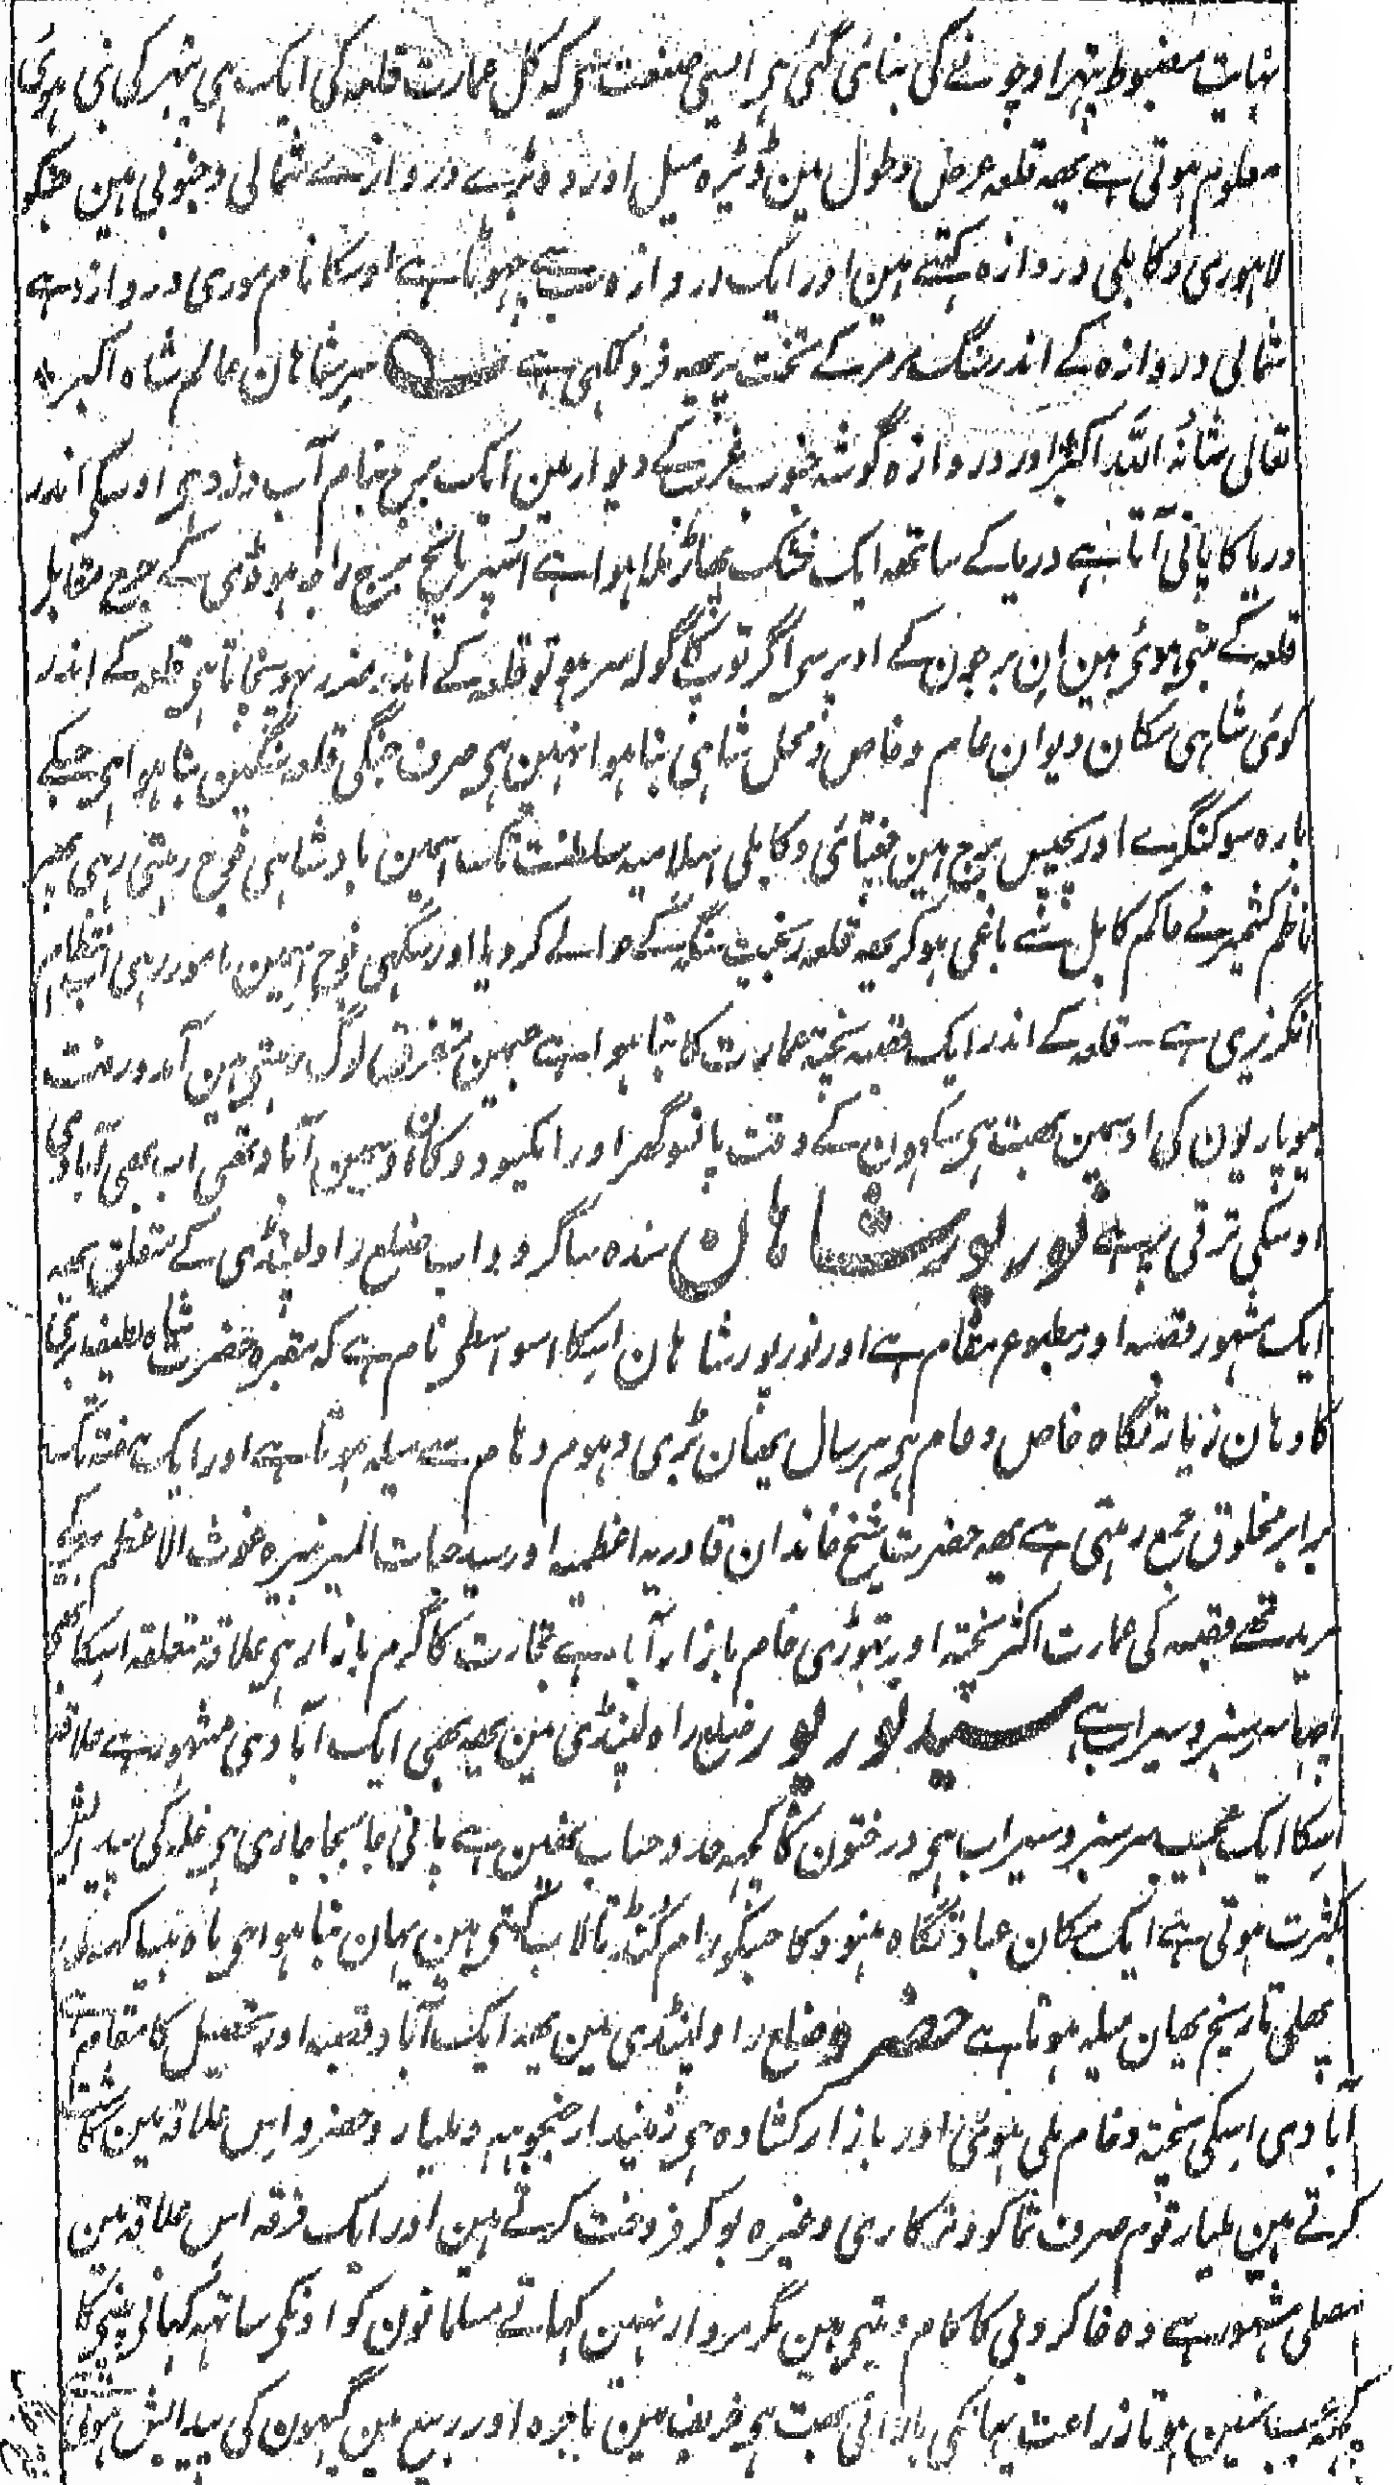 نہایت مضبوط پتہر اور چونے کی بنائی گئی ہر ایسی صنعت سی کہ کل عمارت قلعہ کی ایک ہی پتہر کی بنی ہوئی
معلوم ہوتی ہے یہہ قلعہ عرض و طول مین ڈیڑہ میل اور دو بڑے دروازے شمالی و جنوبی ہین جنکو
لاہوری و کابلی دروازہ کہتے ہین اور ایک دروازہ سب سے چہوٹا ہے اوسکا نام موری دروازہ ہے
شمالی دروازہ کے اندر سنگ مرمر کے تخت پر یہہ فرد لکہی ہے سر شاہان عالم شاہ اکبر
تعالی شانہ اللہ اکبر اور دروازہ گوشہ جنوب غرب کے دیوار مین ایک برج بنام آب دزد ہی اوسکی اندر
دریا کا پانی آتا ہے دریا کے ساتھہ ایک خشک پہاڑ ملا ہوا ہے اسپر پانچ برج راجہ ہوڈی کے برج مقابل
قلعہ کے بنی ہوئی ہین ان برجون کے اوپر سی اگر توپ کا گولہ سر ہو تو قلعہ کے اندر ضرر پہونچاتا ہی قلعہ کے اندر
کوئی شاہی مکان دیوان عام و خاص و محل شاہی بنا ہوا نہین ہی صرف جنگی قلعہ سنگین بنا ہوا ہی جسکے
بارہ سو کنگرے اور پچیس برج ہین چغتائی و کابلی اسلامیہ سلطنت تک اسمین بادشاہی فوج رہتی رہی پہر
ناظم کشمیر نے حاکم کابل سے باغی ہو کر یہہ قلعہ رنجیت سنگہ کے حوالے کر دیا اور سکہی فوج اسمین مامور رہی اب انتظام
انگریزی ہے ـ قلعہ کے اندر ایک قصبہ پختہ عمارت کا بنا ہوا ہے جسمین متفرق لوگ رہتی ہین آمد و رفت
بیوپاریون کی اوسمین بہت ہی سکہون کے وقت پانسو گہر اور ایکسو دوکان اوسمین آباد تھی اب بھی آبادی
اوسکی ترقی پر ہے نور پور شاہان سندہ ساگر دوآب ضلع راولپنڈی کے متعلق یہہ
ایک مشہور قصبہ اور مطبوع مقام ہے اور نور پور شاہان اسکا اسواسطی نام ہے کہ مقبرہ حضرت شاہ لطیف بری
کا وہان زیارتگاہ خاص و عام ہی ہر سال یہان بڑی دہوم دہام سے میلہ ہوتا ہے اور ایک ہفتہ تک
برابر مخلوق جمع رہتی ہے یہہ حضرت شیخ خاندان قادریہ اعظمیہ اور سید حیات المیر نبیرہ غوث الاعظم کے
مرید تھے قصبہ کی عمارت اکثر پختہ اور تہوڑی خام بازار آباد ہے تجارت کا گرم بازار ہی علاقہ متعلقہ اسکا بھی
سرسبز و سیراب ہے سید پور ضلع راولپنڈی مین یہہ بھی ایک آبادی مشہور ہے علاقہ
اسکا ایک عجیب سرسبز و سیراب ہی درختون کا کچہہ حد و حساب نہین ہے پانی جابجا جاری ہی غلہ کی پیدایش
بکثرت ہوتی ہے ایک مکان عبادتگاہ ہنود کا جسکو رام کنڈ تالاب کہتی ہین یہان بنا ہوا ہی ماہ بیساکہہ کی
پہلی تاریخ یہان میلہ ہوتا ہے حضرو ضلع راولپنڈی مین یہہ ایک آباد قصبہ اور تحصیل کا مقام ہے
آبادی اسکی پختہ و خام ملی ہوئی اور بازار کشادہ ہی زمیندار جنجوہہ و ملیار و حضرو اس علاقہ مین
کرتے ہین ملیار قوم صرف تماکو و ترکاری وغیرہ بو کر فروخت کرتے ہین اور ایک فرقہ اس علاقہ مین
مصلی مشہور ہے وہ خاکروبی کا کام دیتی ہین مگر مردار نہین کہاتے مسلمانون کو اونکی ساتہہ کہانی پینی کا
کچہہ عیب نہین ہوتا زراعت یہانکی بارانی بہت ہی خریف مین باجرہ اور ربیع مین گیہون کی پیدایش ہوتی